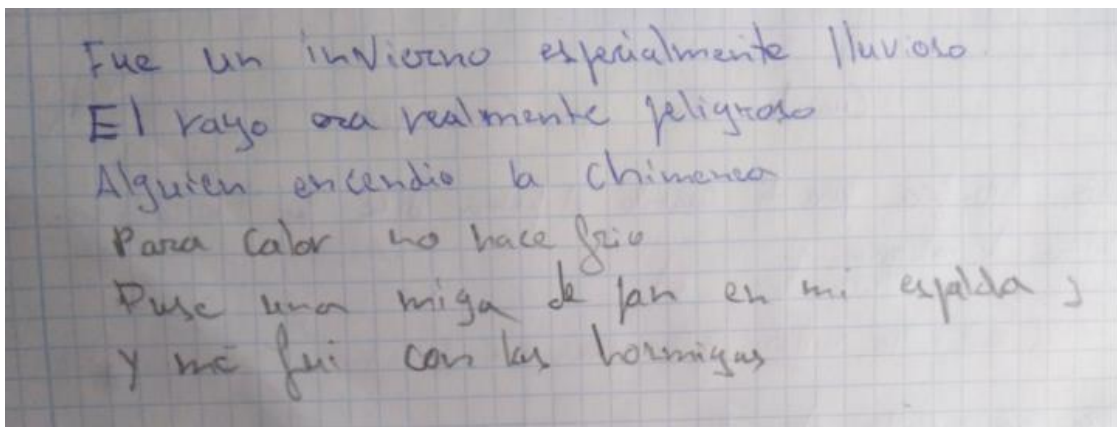 Fue un invierno especialmente lluvioso
El rayo era realmente peligroso
Alguien encendio la chimenea
Para calor no hace frio
Puse una miga de pan en mi espalda,
y me fui con las hormigas